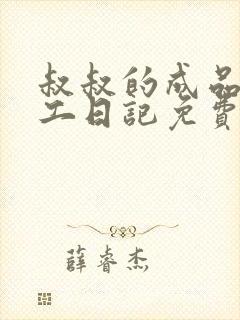 叔叔的成品
工日记免費
薛睿杰